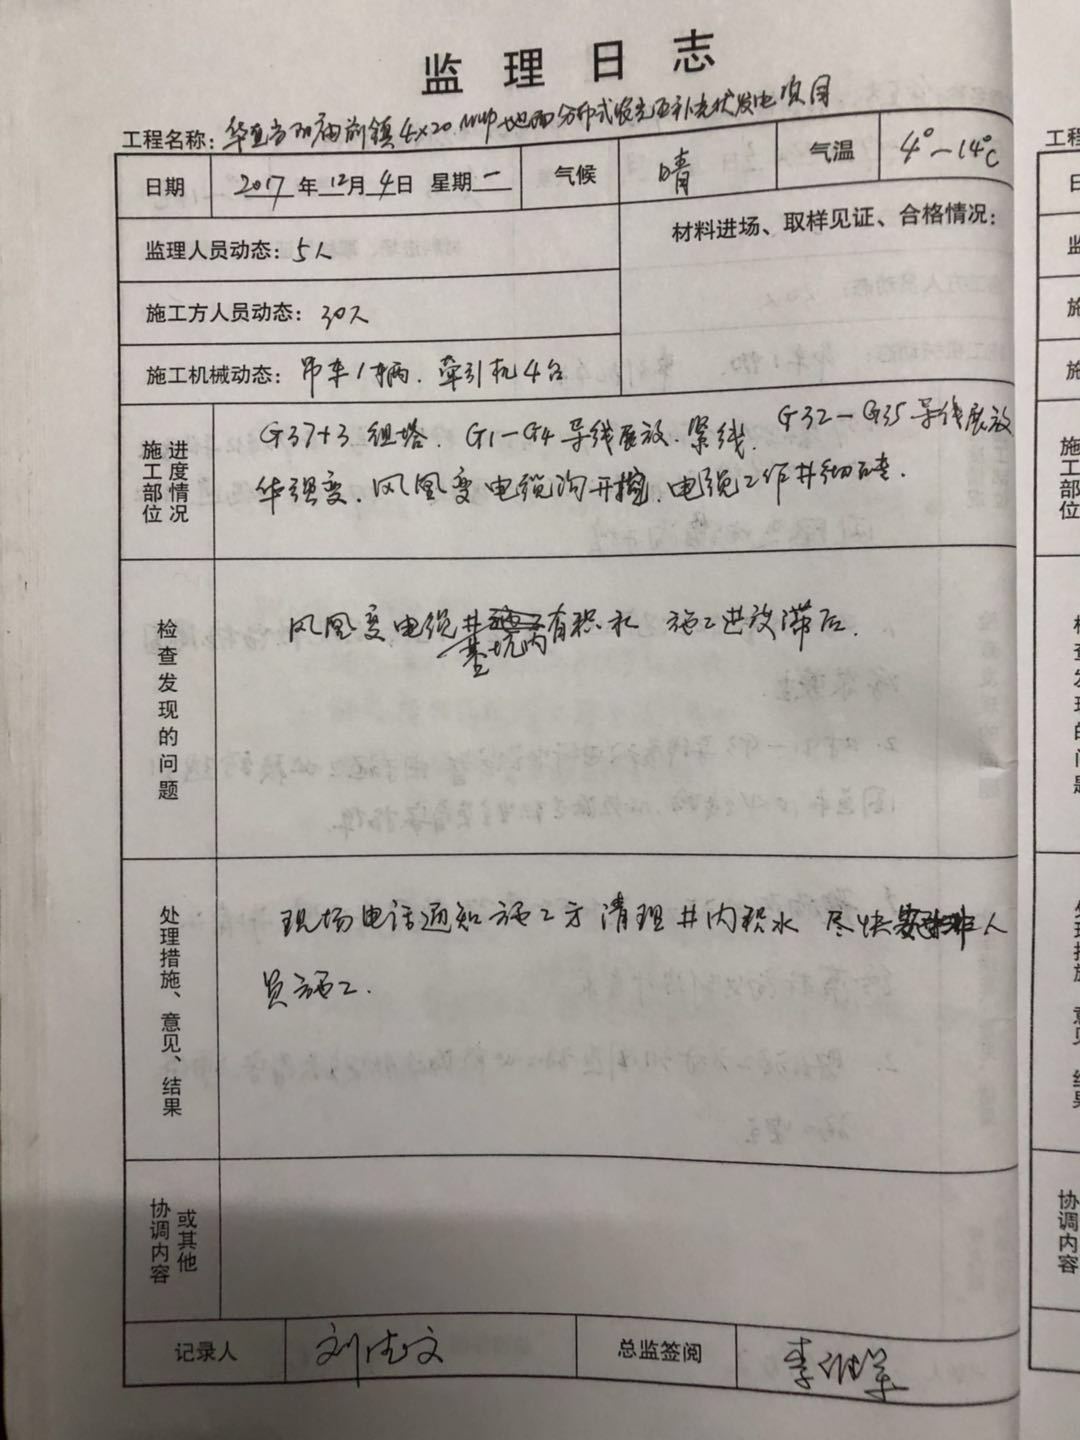 监理日志
工程名称：华 当阳庙前镇4×20MWP地面分布式农光互补光伏发电项目
日期 2017年12月4日 星期一 气候 晴 气温 4°—14℃
监理人员动态：5人 材料进场、取样见证、合格情况：
施工方人员动态：30人
施工机械动态：吊车1辆、牵引机4台
施工部位 进度情况
G37+3组塔、G1—G4导线展放、紧线、G32—G35导线展放
华强变、风凰变电缆沟开挖、电缆工作井砌砖.
检查发现的问题
风凰变电缆井基坑内有积水 施工进度滞后.
处理措施、意见、结果
现场电话通知施工方清理井内积水 尽快安排人
员施工.
协调内容 或其他
记录人 刘 文 总监签阅 李
工程